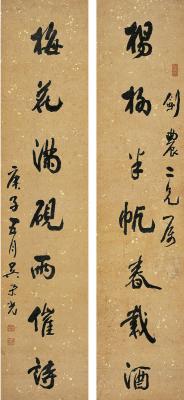 楊柳半帆春載酒
劍農二兄屬
梅花滿硯雨催詩
庚子五月吳榮光